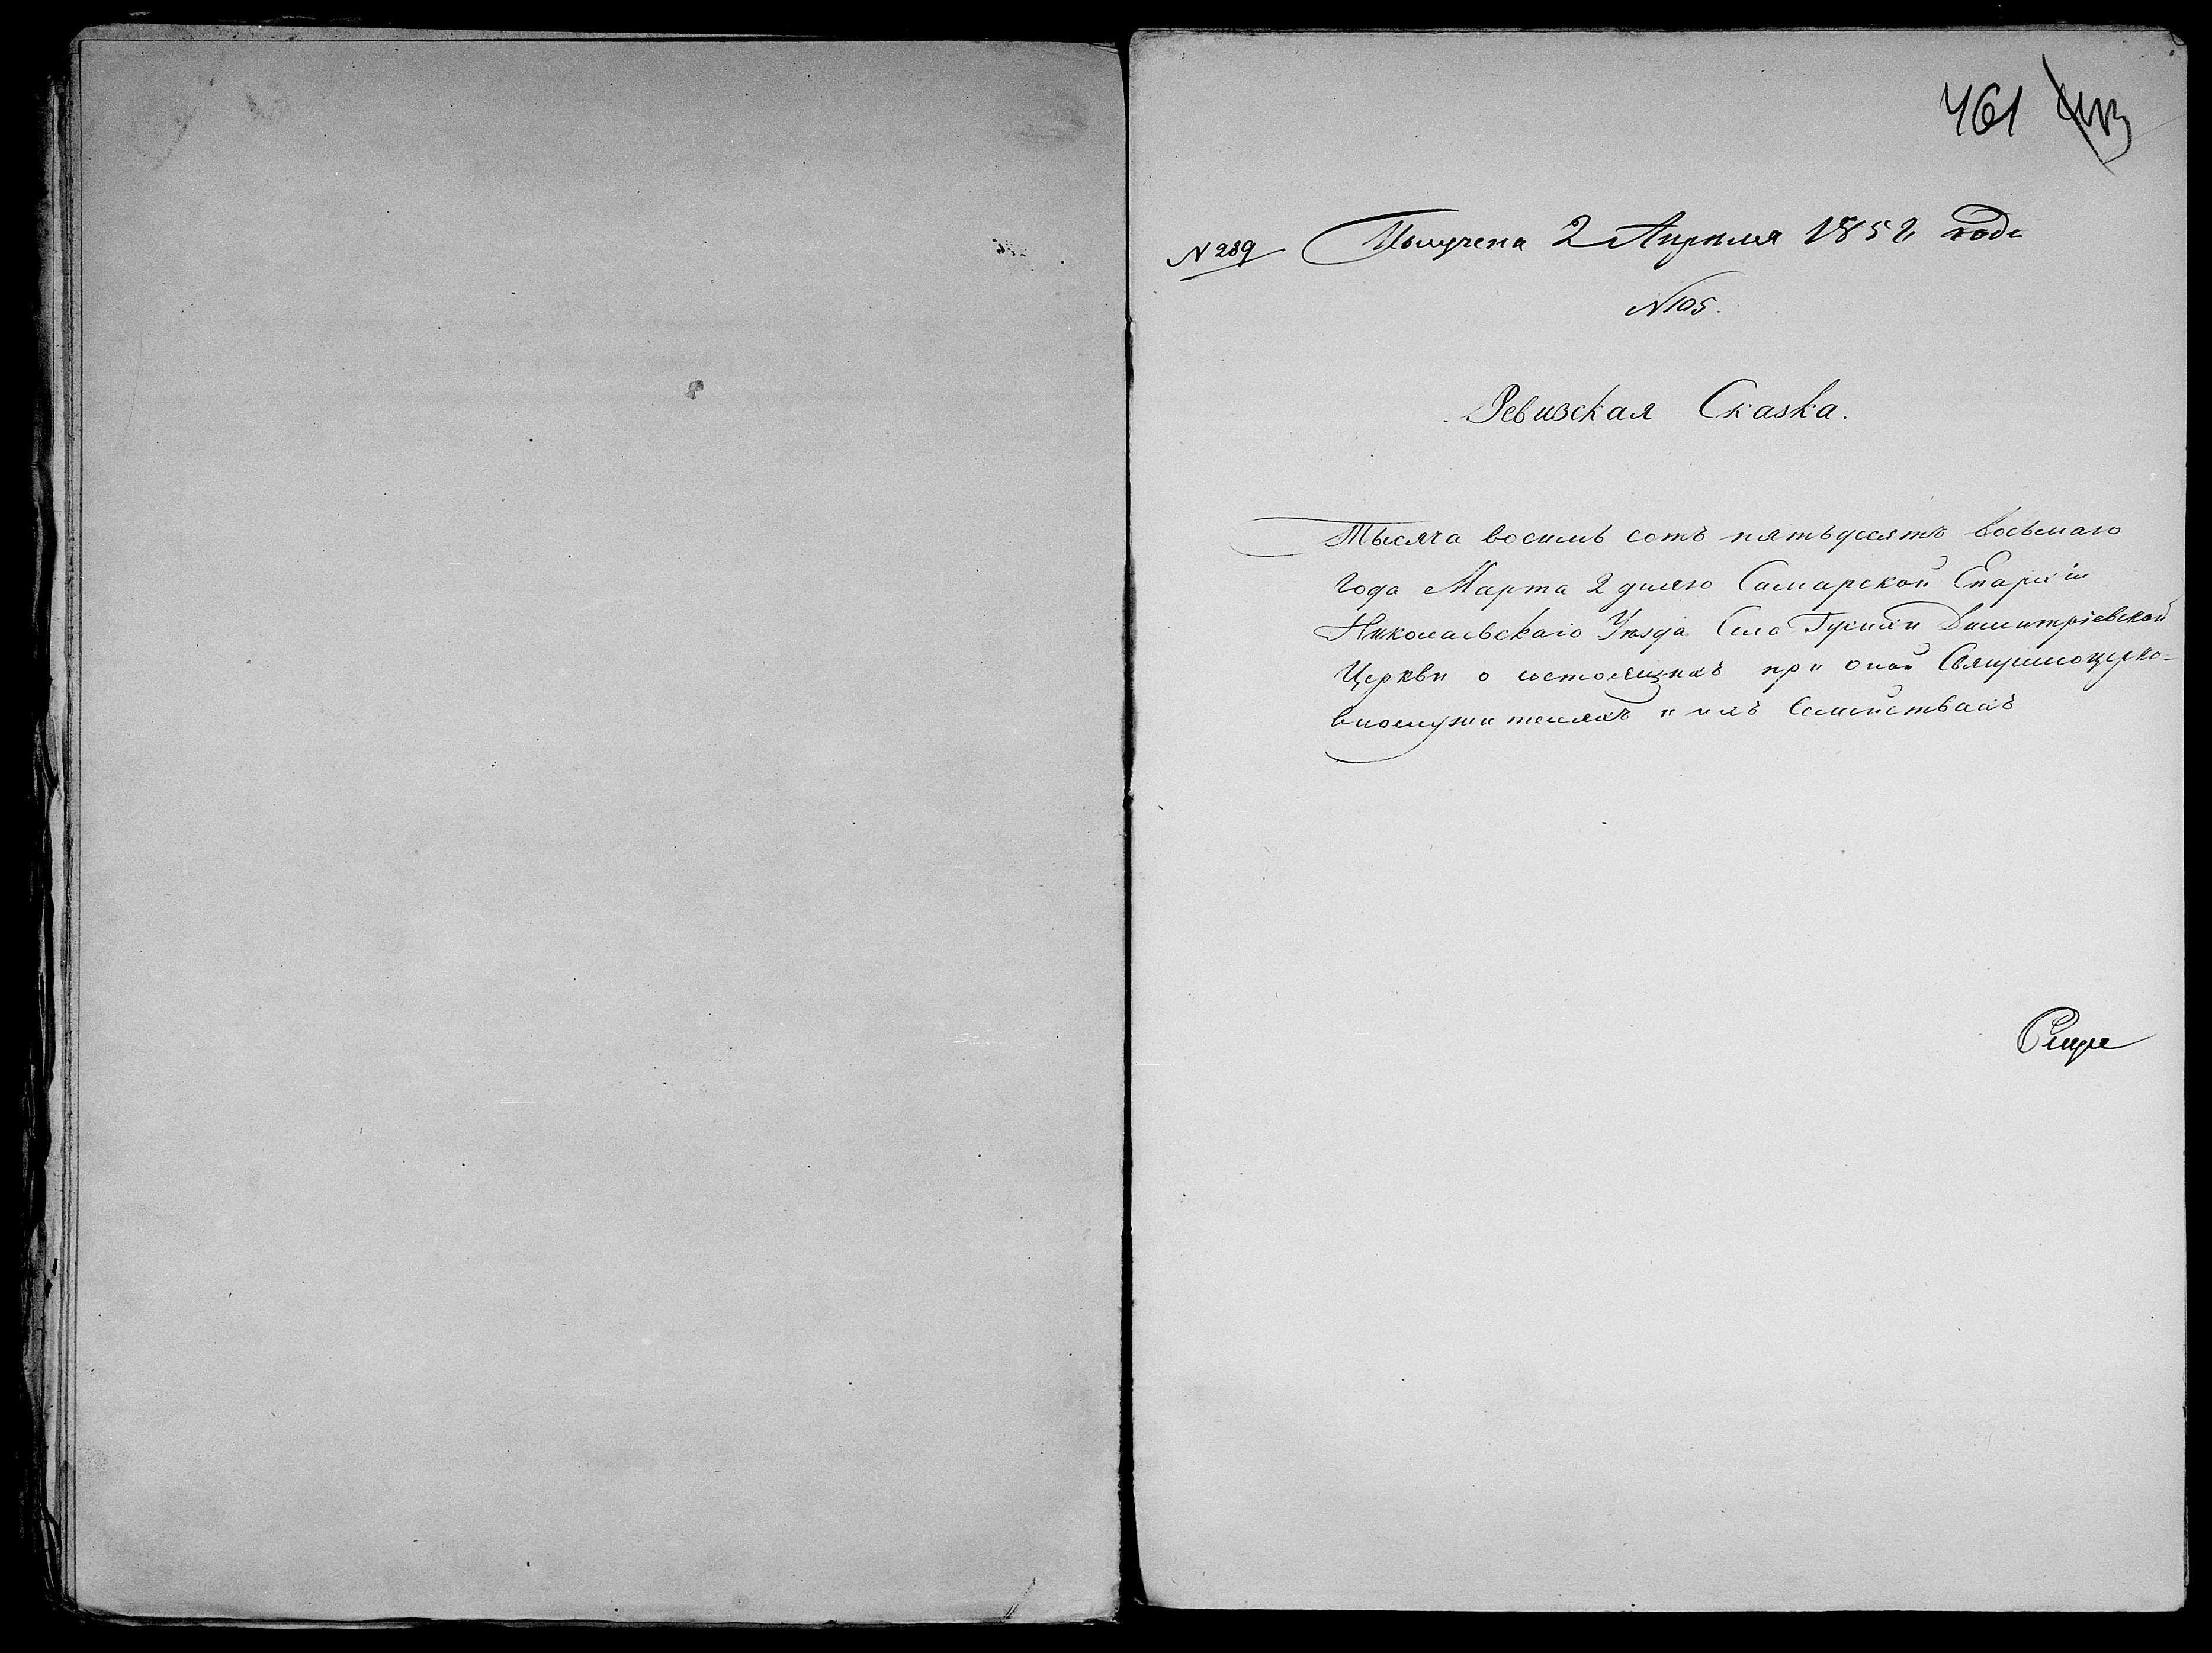 461
N 289 Получена 2 Апреля 1858 года
N 105.
Ревизская Сказка.
Тысяча восемь сотъ пятьдесятъ восьмаго
года Марта 2 дня Самарской Епархіи
Николаевскаго Уѣзда Села Гусихи Димитріевской
Церкви о состоящихъ при оной Священноцерко-
внослужителяхъ и ихъ Семействахъ